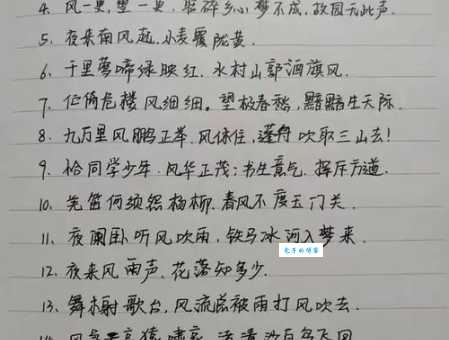 4. 风一更,雪一更,聒碎乡心梦不成,故园无此声.
5. 夜来南风起,小麦覆陇黄.
6. 千里莺啼绿映红.水村山郭酒旗风.
7. 伫倚危楼风细细。望极春愁,黯黯生天际.
8. 九万里风鹏正举.风休住,蓬舟吹取三山去!
9. 恰同学少年.风华正茂;书生意气.挥斥方遒.
10. 羌笛何须怨杨柳.春风不度玉门关.
11. 夜阑卧听风吹雨,铁马冰河入梦来.
12. 夜来风雨声.花落知多少.
13. 舞榭歌台,风流总被雨打风吹去.